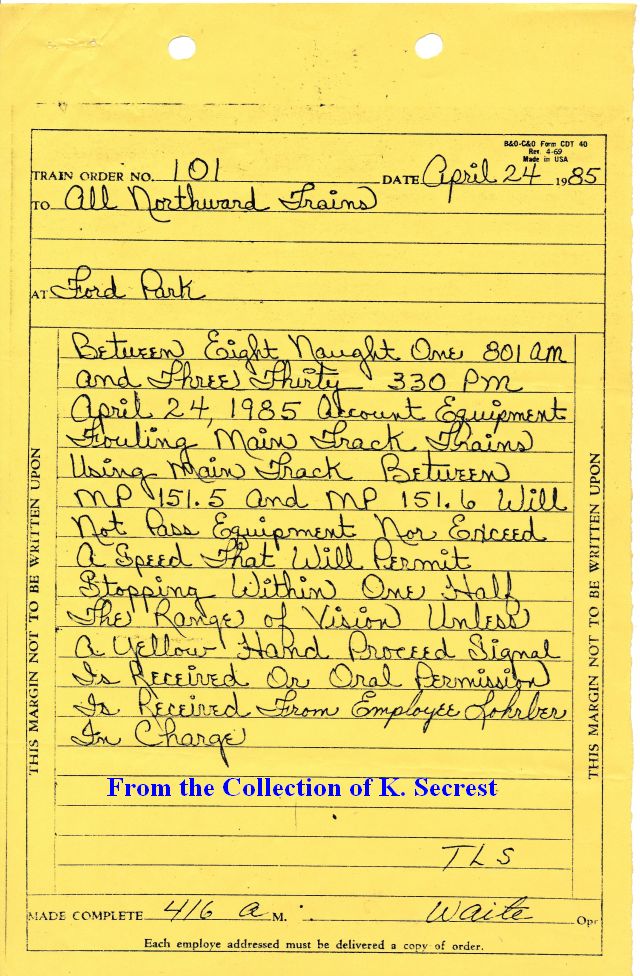 B&O-C&O Form CDT 40
Rev. 4-69
Made in USA
TRAIN ORDER NO. 101 DATE April 24 1985
TO All Northward Trains
AT Ford Park
Between Eight Naught One 801 am
and Three Thirty 330 Pm
April 24, 1985 Account Equipment
Fouling Main Track Trains
Using Main Track Between
MP 151.5 and MP 151.6 Will
Not Pass Equipment Nor Exceed
A Speed That Will Permit
Stopping Within One Half
The Range of Vision Unless
A Yellow Hand Proceed Signal
Is Received Or Oral Permission
Is Received From Employee Lohrber
In Charge
THIS MARGIN NOT TO BE WRITTEN UPON
THIS MARGIN NOT TO BE WRITTEN UPON
From the Collection of K. Secrest
TLS
MADE COMPLETE 416 a M. Waite Opr
Each employe addressed must be delivered a copy of order.